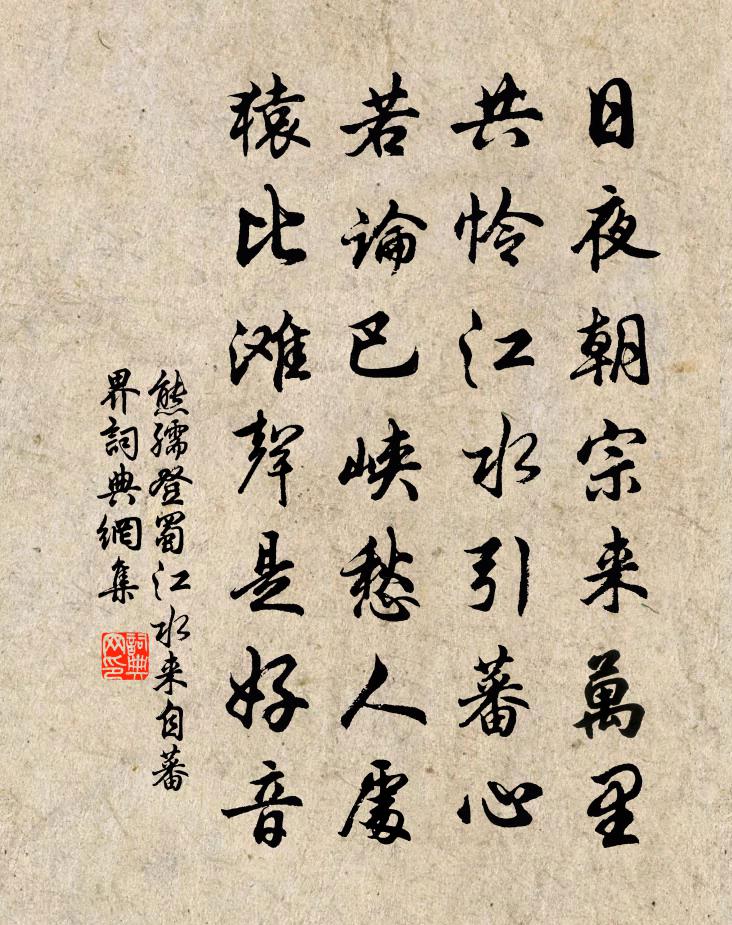 日夜朝宗来萬里
共怜江水引蕃心
若論巴峡愁人處
猿比滩聲是好音
熊孺登蜀江水来自蕃
界詞典網集
詞典网印